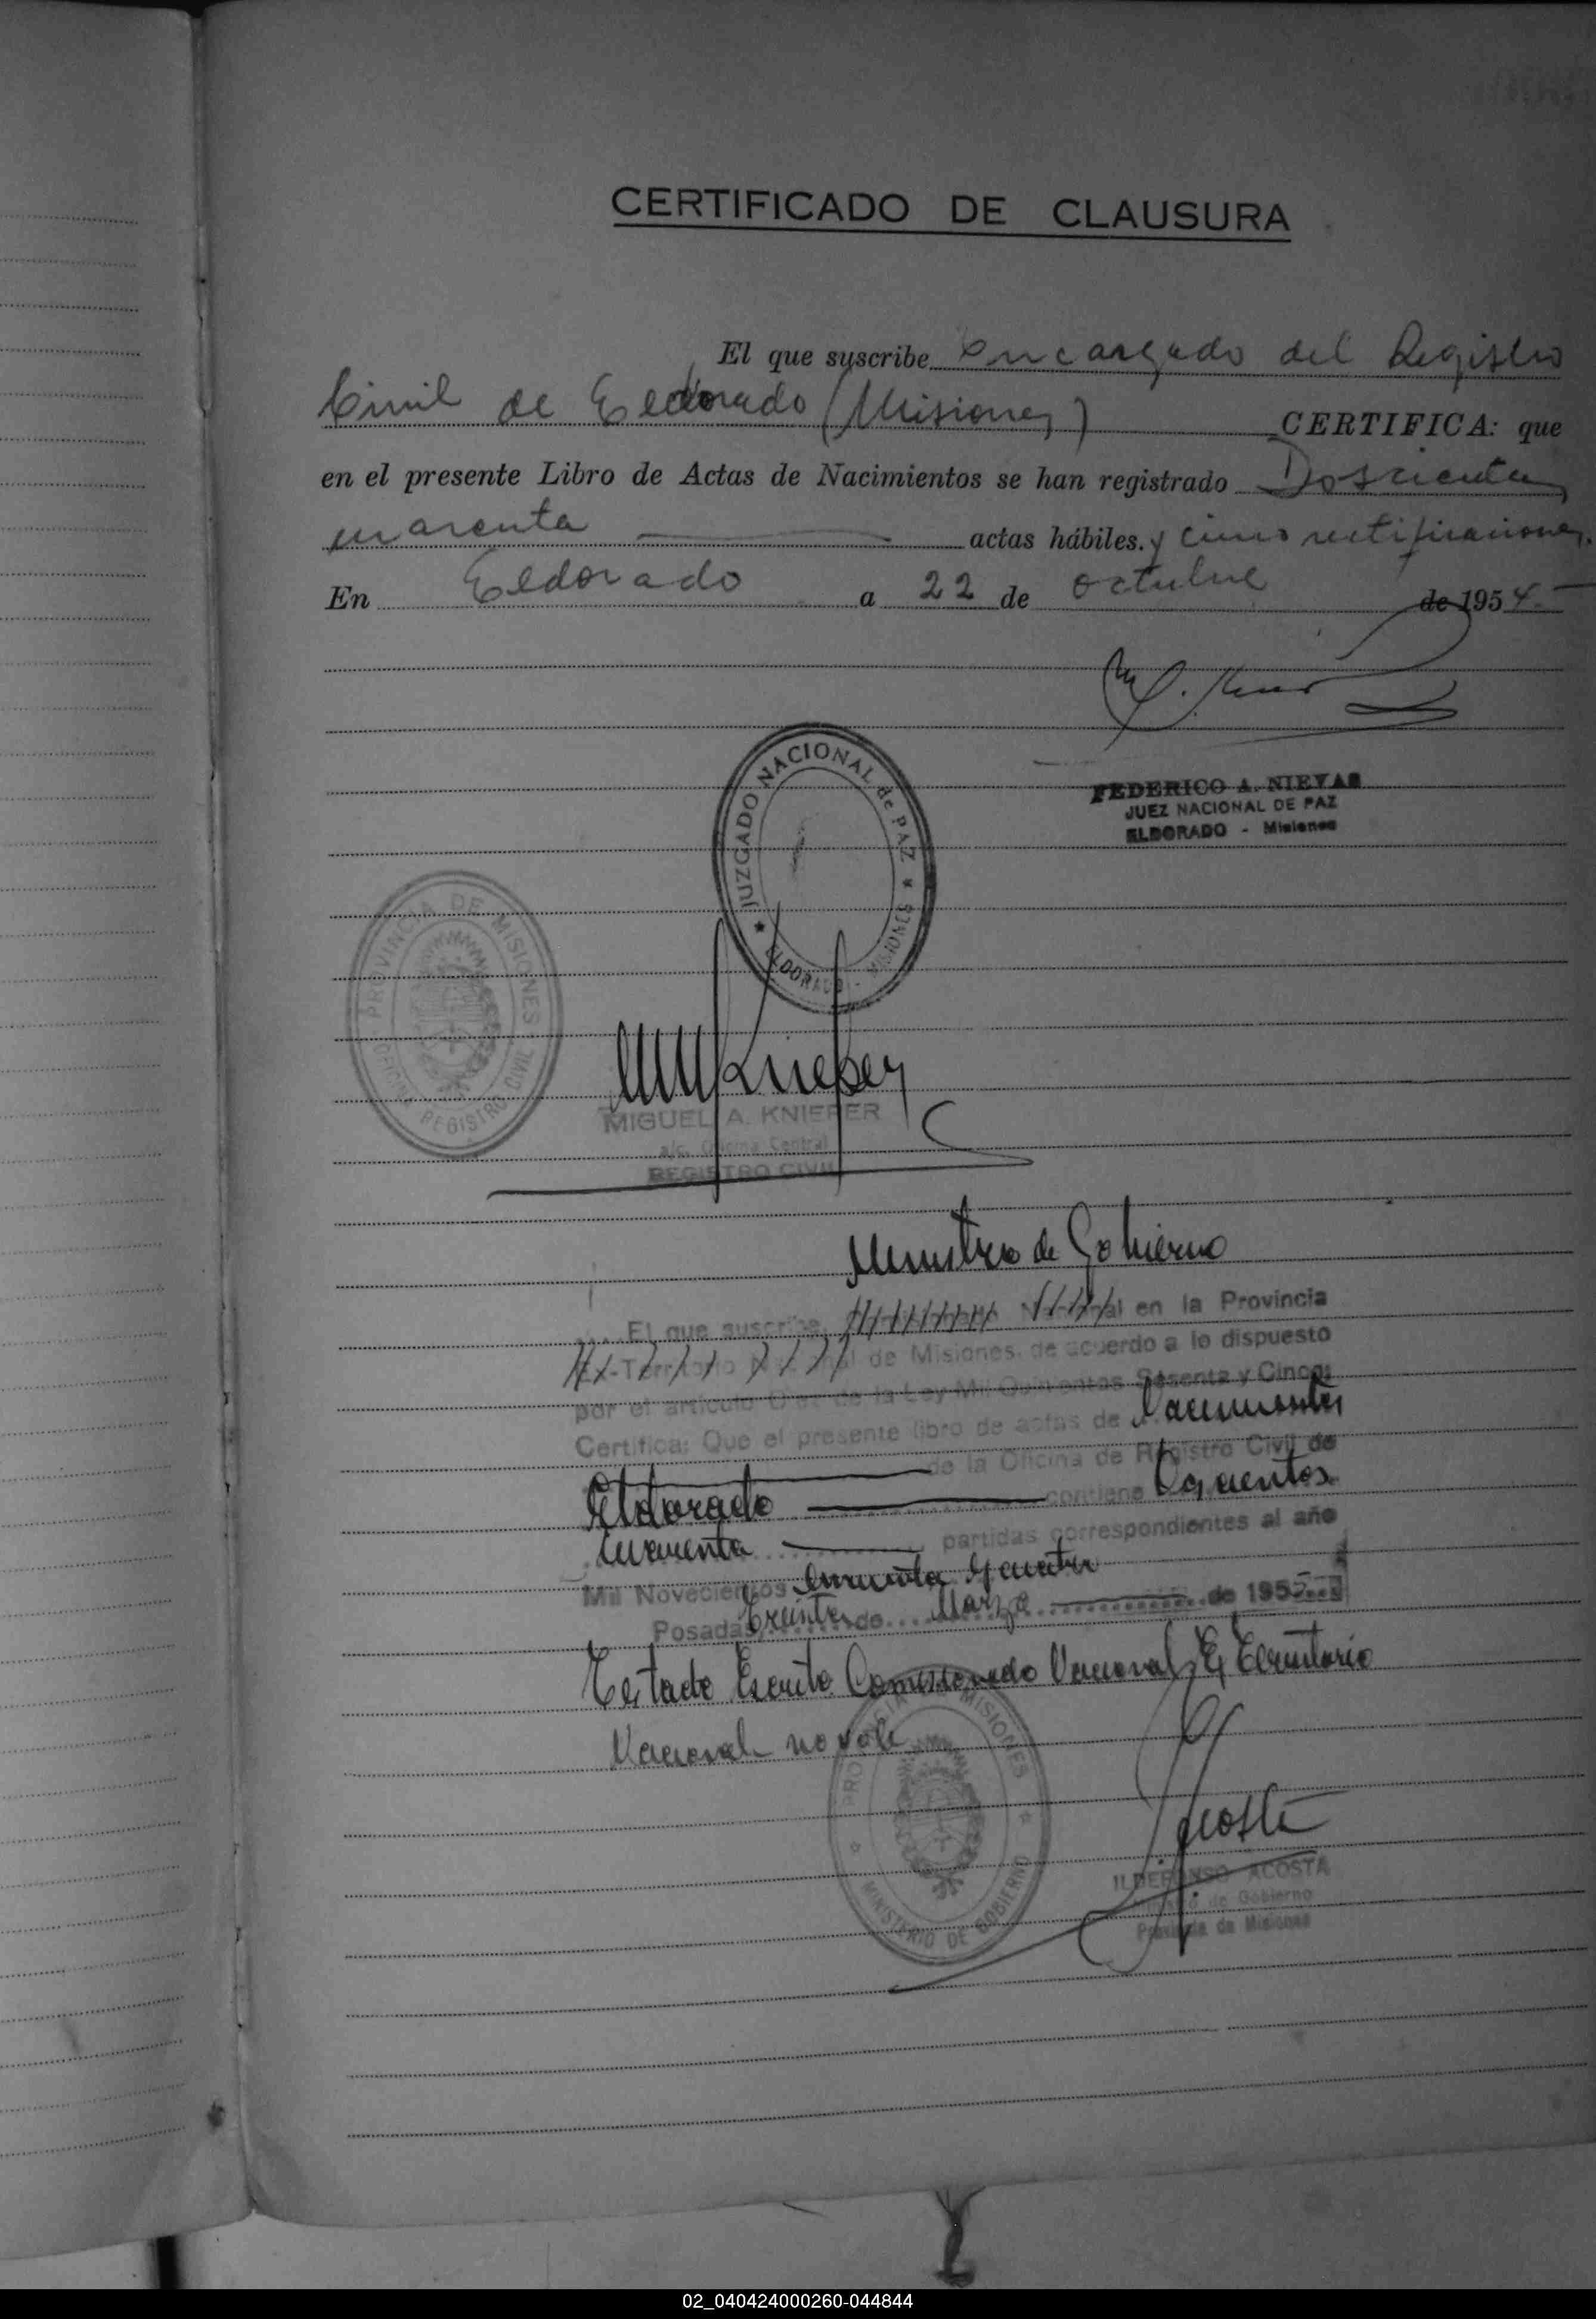 CERTIFICADO DE CLAUSURA
El que suscribe encargado del Registro
Civil de Eldorado (Misiones) CERTIFICA: que
en el presente Libro de Actas de Nacimientos se han registrado Doscientas
cuarenta actas hábiles. y cinco rectificaciones.
En Eldorado a 22 de octubre de 1954.
FEDERICO A. NIEVAS
JUEZ NACIONAL DE PAZ
ELDORADO - Misiones
JUZGADO NACIONAL de PAZ ★ ELDORADO - MISIONES ★
PROVINCIA DE MISIONES
OFICINA REGISTRO CIVIL
MIGUEL A. KNIEPER
a/c. Oficina Central
REGISTRO CIVIL
Ministro de Gobierno
El que suscribe, Nacional en la Provincia
Ex-Territorio Nacional de Misiones, de acuerdo a lo dispuesto
por el artículo Diez de la Ley Mil Quinientos Sesenta y Cinco;
Certifica: Que el presente libro de actas de Nacimientos
de la Oficina de Registro Civil de
Eldorado contiene Doscientos
cuarenta partidas correspondientes al año
Mil Novecientos cincuenta y cuatro
Posadas, treinta de Marzo de 195
Testado Escrito Comisionado Nacional, Ex Territorio
Nacional no vale
PROVINCIA DE MISIONES
MINISTERIO DE GOBIERNO
Acosta
ILDEFONSO ACOSTA
Ministro de Gobierno
Provincia de Misiones
02_040424000260-044844